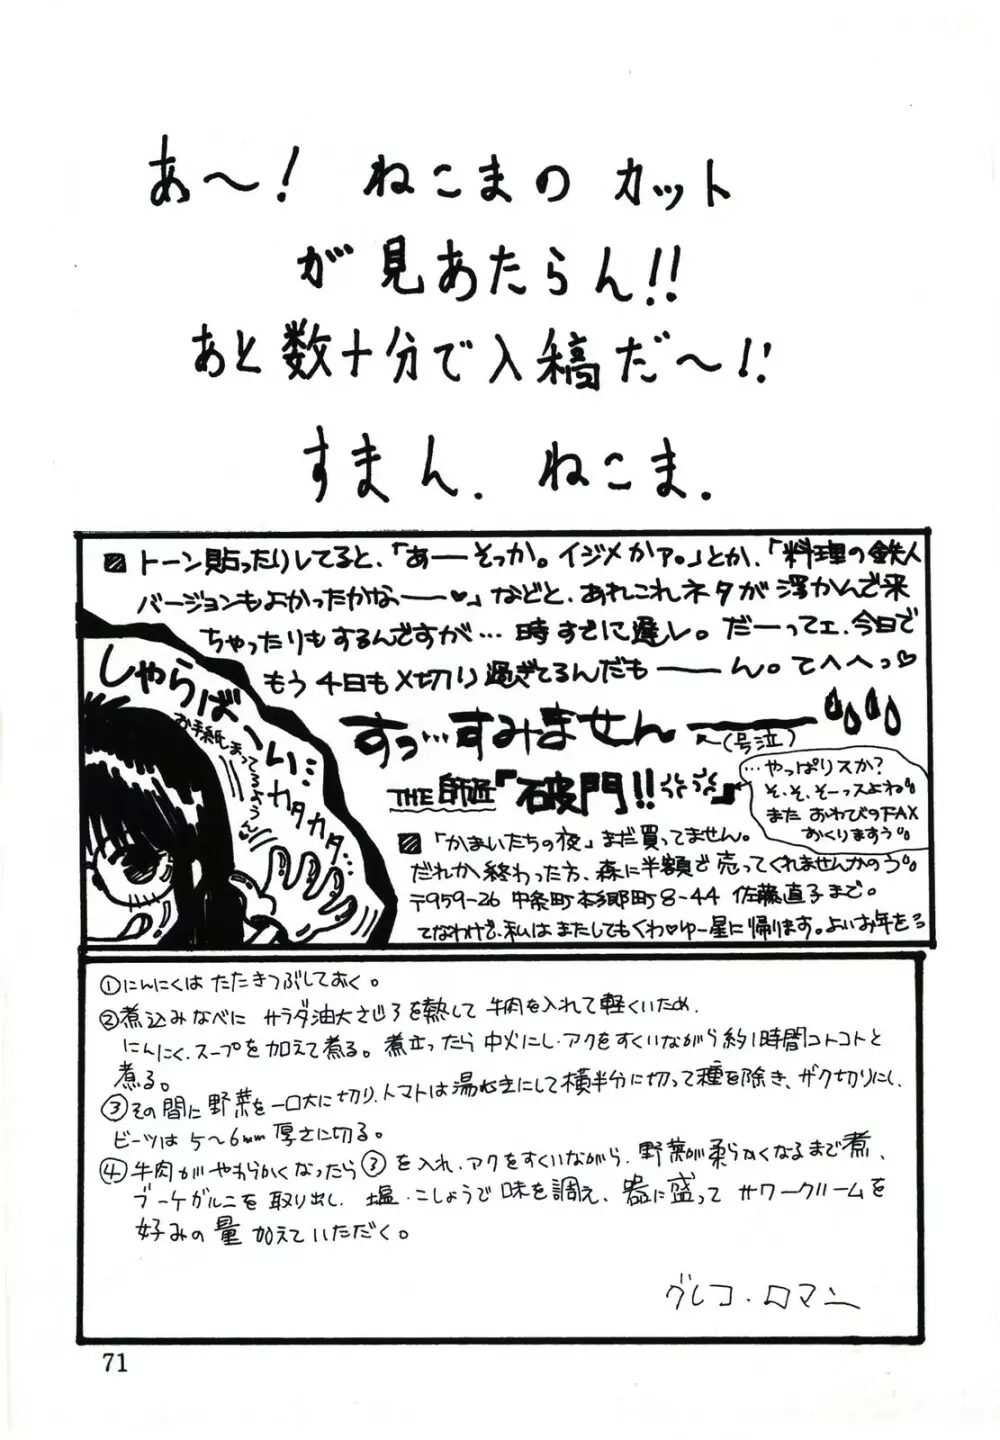 あ〜! ねこまの カット
が見あたらん!!
あと数十分で入稿だ〜!!
すまん. ねこま.
トーン貼ったりしてると、「あーそっか。イジメかァ。」とか、「料理の鉄人
バージョンもよかったかなー♥」などと、あれこれネタが浮かんで来
ちゃったりもするんですが…時すでに遅し。だーってェ、今日で
もう4日も〆切り過ぎてるんだもーん。てへへっ♡
すっ…すみませんー
(号泣)
THE 師匠『破門!!』
…やっぱりスか?
そ、そ、そーっスよね
また おわびのFAX
おくりますう
しゃらばーい…
お手紙まってるよぅん
カタカタ
「かまいたちの夜」まだ買ってません。
だれか終わった方、森に半額で売ってくれませんかのう
てなわけで、私はまたしてもくわ♡ゆー星に帰ります。よいお年を
①にんにくは たたきつぶしておく。
②煮込みなべに サラダ油大さじ3を熱して 牛肉を入れて軽くいため、
にんにく、スープを加えて煮る。煮立ったら中火にし、アクをすくいながら約1時間コトコトと
煮る。
③その間に野菜を一口大に切り、トマトは湯むきにして横半分に切って種を除き、ザク切りにし、
ビーツは5〜6mm厚さに切る。
④牛肉がやわらかくなったら③を入れ、アクをすくいながら、野菜が柔らかくなるまで煮、
ブーケガルニを取り出し、塩・こしょうで味を調え、器に盛って サワークリームを
好みの量 加えていただく。
グレコ・ロマン
71